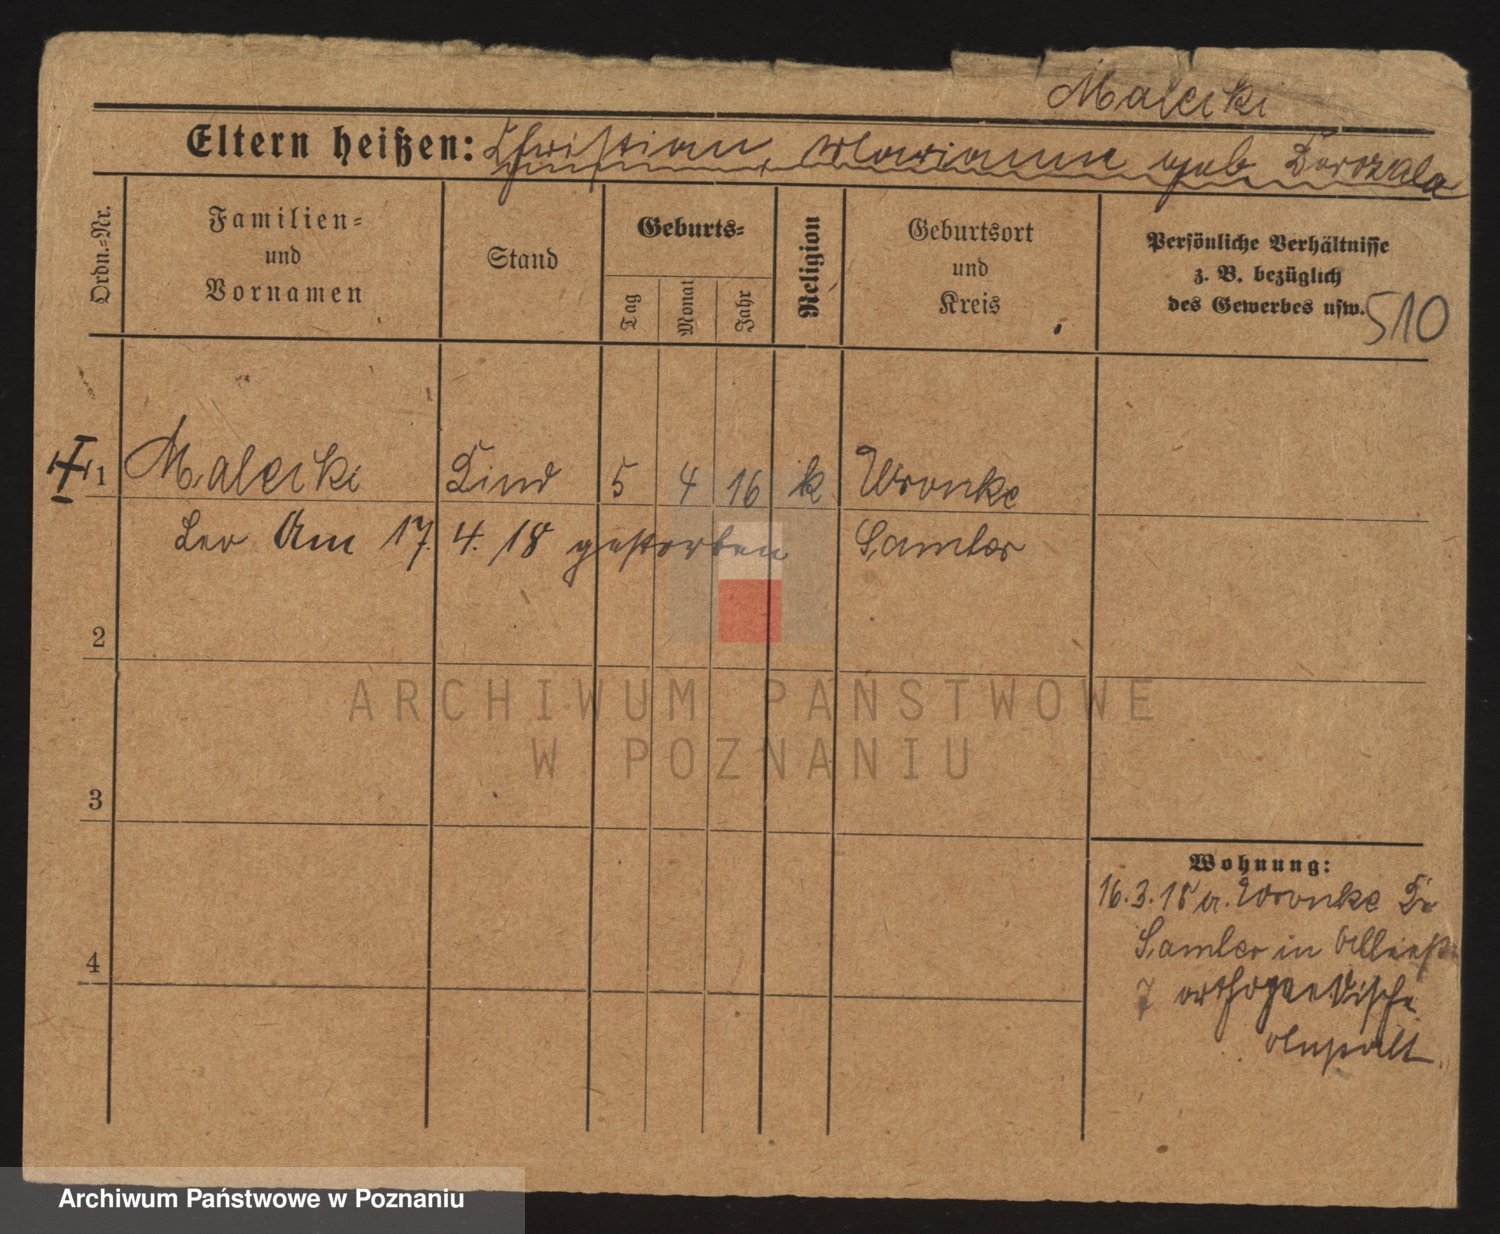 Malecki
Eltern heißen: Christian, Marianne geb
Ordn.-Nr.
Familien-
und
Vornamen
Stand
Geburts-
Tag
Monat
Jahr
Religion
Geburtsort
und
Kreis
Persönliche Verhältnisse
z. B. bezüglich
des Gewerbes usw.
510
1 Malecki Kind 5 4 16 k Wronke
Leo Am 17. 4. 18 gestorben Samter
2
3
4
Wohnung:
16.3.18 Wronke Kr
Samter in
orthopaedische
Anstalt.
ARCHIWUM PAŃSTWOWE
W POZNANIU
Archiwum Państwowe w Poznaniu